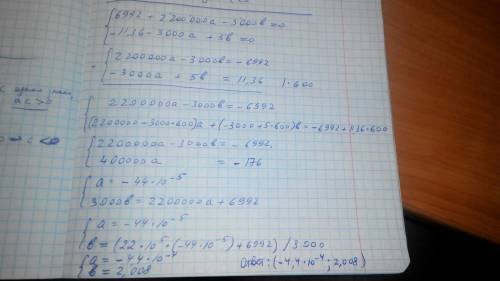 { 6992 + 2200000a - 3000в = 0
-11,36 - 3000a + 5в = 0
{ 2200000a - 3000в = -6992
-3000a + 5в = 11,36 | · 600
ac > 0
{ 2200000a - 3000в = -6992
(2200000 - 3000·600)a + (-3000 + 5·600)в = -6992 + 11,36·600
c < 0
{ 2200000a - 3000в = -6992,
400000a = -176
{ a = -44·10⁻⁵
3000в = 2200000a + 6992
{ a = -44·10⁻⁵
в = (22·10⁵·(-44·10⁻⁵) + 6992) / 3000
{ a = -4,4·10⁻⁴
в = 2,008
Ответ: (-4,4·10⁻⁴; 2,008)